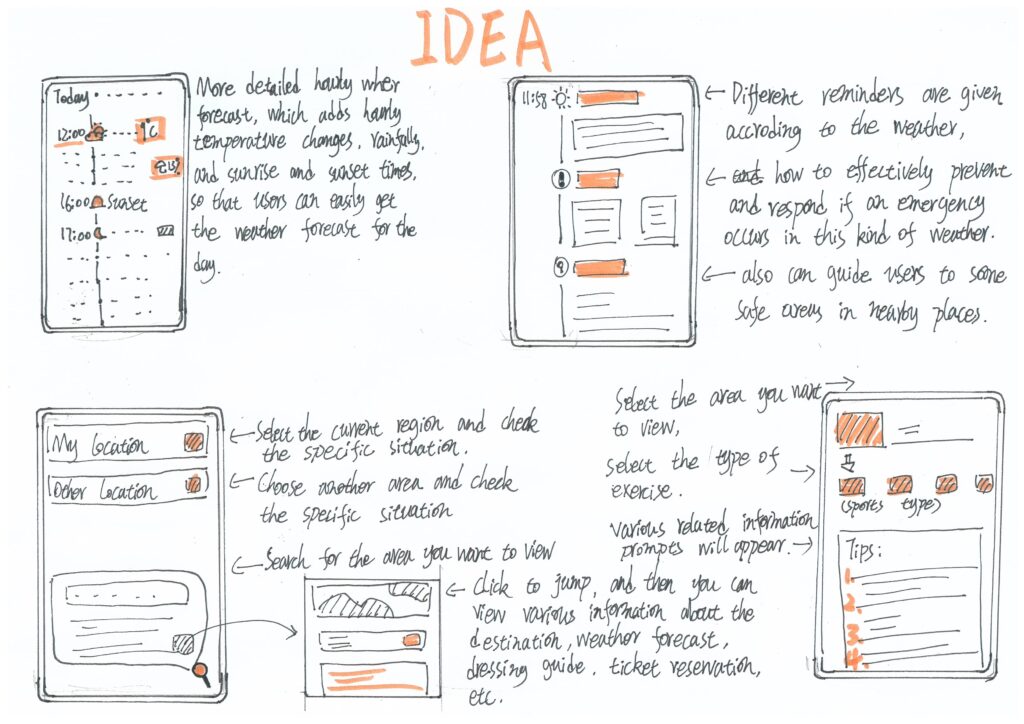 IDEA
Today
12:00
1℃
16:00 Sunset
17:00
More detailed hourly wher
forecast, which adds hourly
temperature changes, rainfally,
and sunrise and sunset times,
so that users can easily get
the weather forecast for the
day.
11:58
Different reminders are given
accroding to the weather,
how to effectively prevent
and respond if an emergency
occurs in this kind of weather.
also can guide users to some
safe areas in nearby places.
My Location
Other Location
Select the current region and check
the specific situation.
Choose another area and check
the specific situation
Search for the area you want to view
Click to jump, and then you can
view various information about the
destination, weather forecast,
dressing guide, ticket reservation,
etc.
Select the area you want
to view,
select the type of
exercise.
various related information
prompts will appear.
(sports type)
Tips:
1.
2.
3.
4.